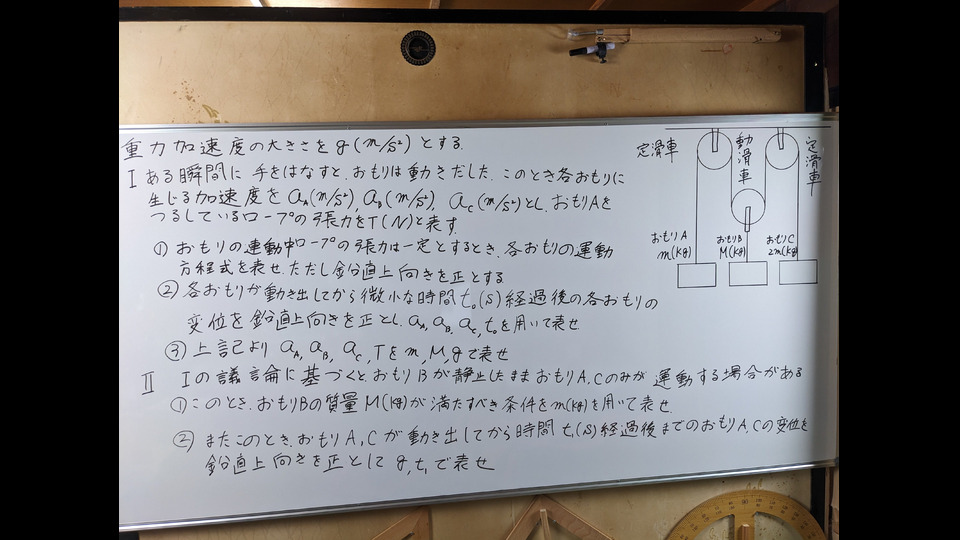 重力加速度の大きさをg(m/s²)とする.
I ある瞬間に手をはなすと、おもりは動きだした.このとき各おもりに
生じる加速度をa_A(m/s²),a_B(m/s²),a_C(m/s²)とし、おもりAを
つるしているロープの張力をT(N)と表す.
① おもりの運動中ロープの張力は一定とするとき、各おもりの運動
方程式を表せ.ただし鉛直上向きを正とする
② 各おもりが動き出してから微小な時間t₀(s)経過後の各おもりの
変位を鉛直上向きを正とし、a_A,a_B,a_C,t₀を用いて表せ
③ 上記よりa_A,a_B,a_C,Tをm,M,gで表せ
II Iの議論に基づくと、おもりBが静止したままおもりA,Cのみが運動する場合がある
①このとき、おもりBの質量M(kg)が満たすべき条件をm(kg)を用いて表せ.
② またこのとき、おもりA,Cが動き出してから時間t₁(s)経過後までのおもりA,Cの変位を
鉛直上向きを正としてg,t₁で表せ
定滑車
動滑車
定滑車
おもりA
m(kg)
おもりB
M(kg)
おもりC
2m(kg)